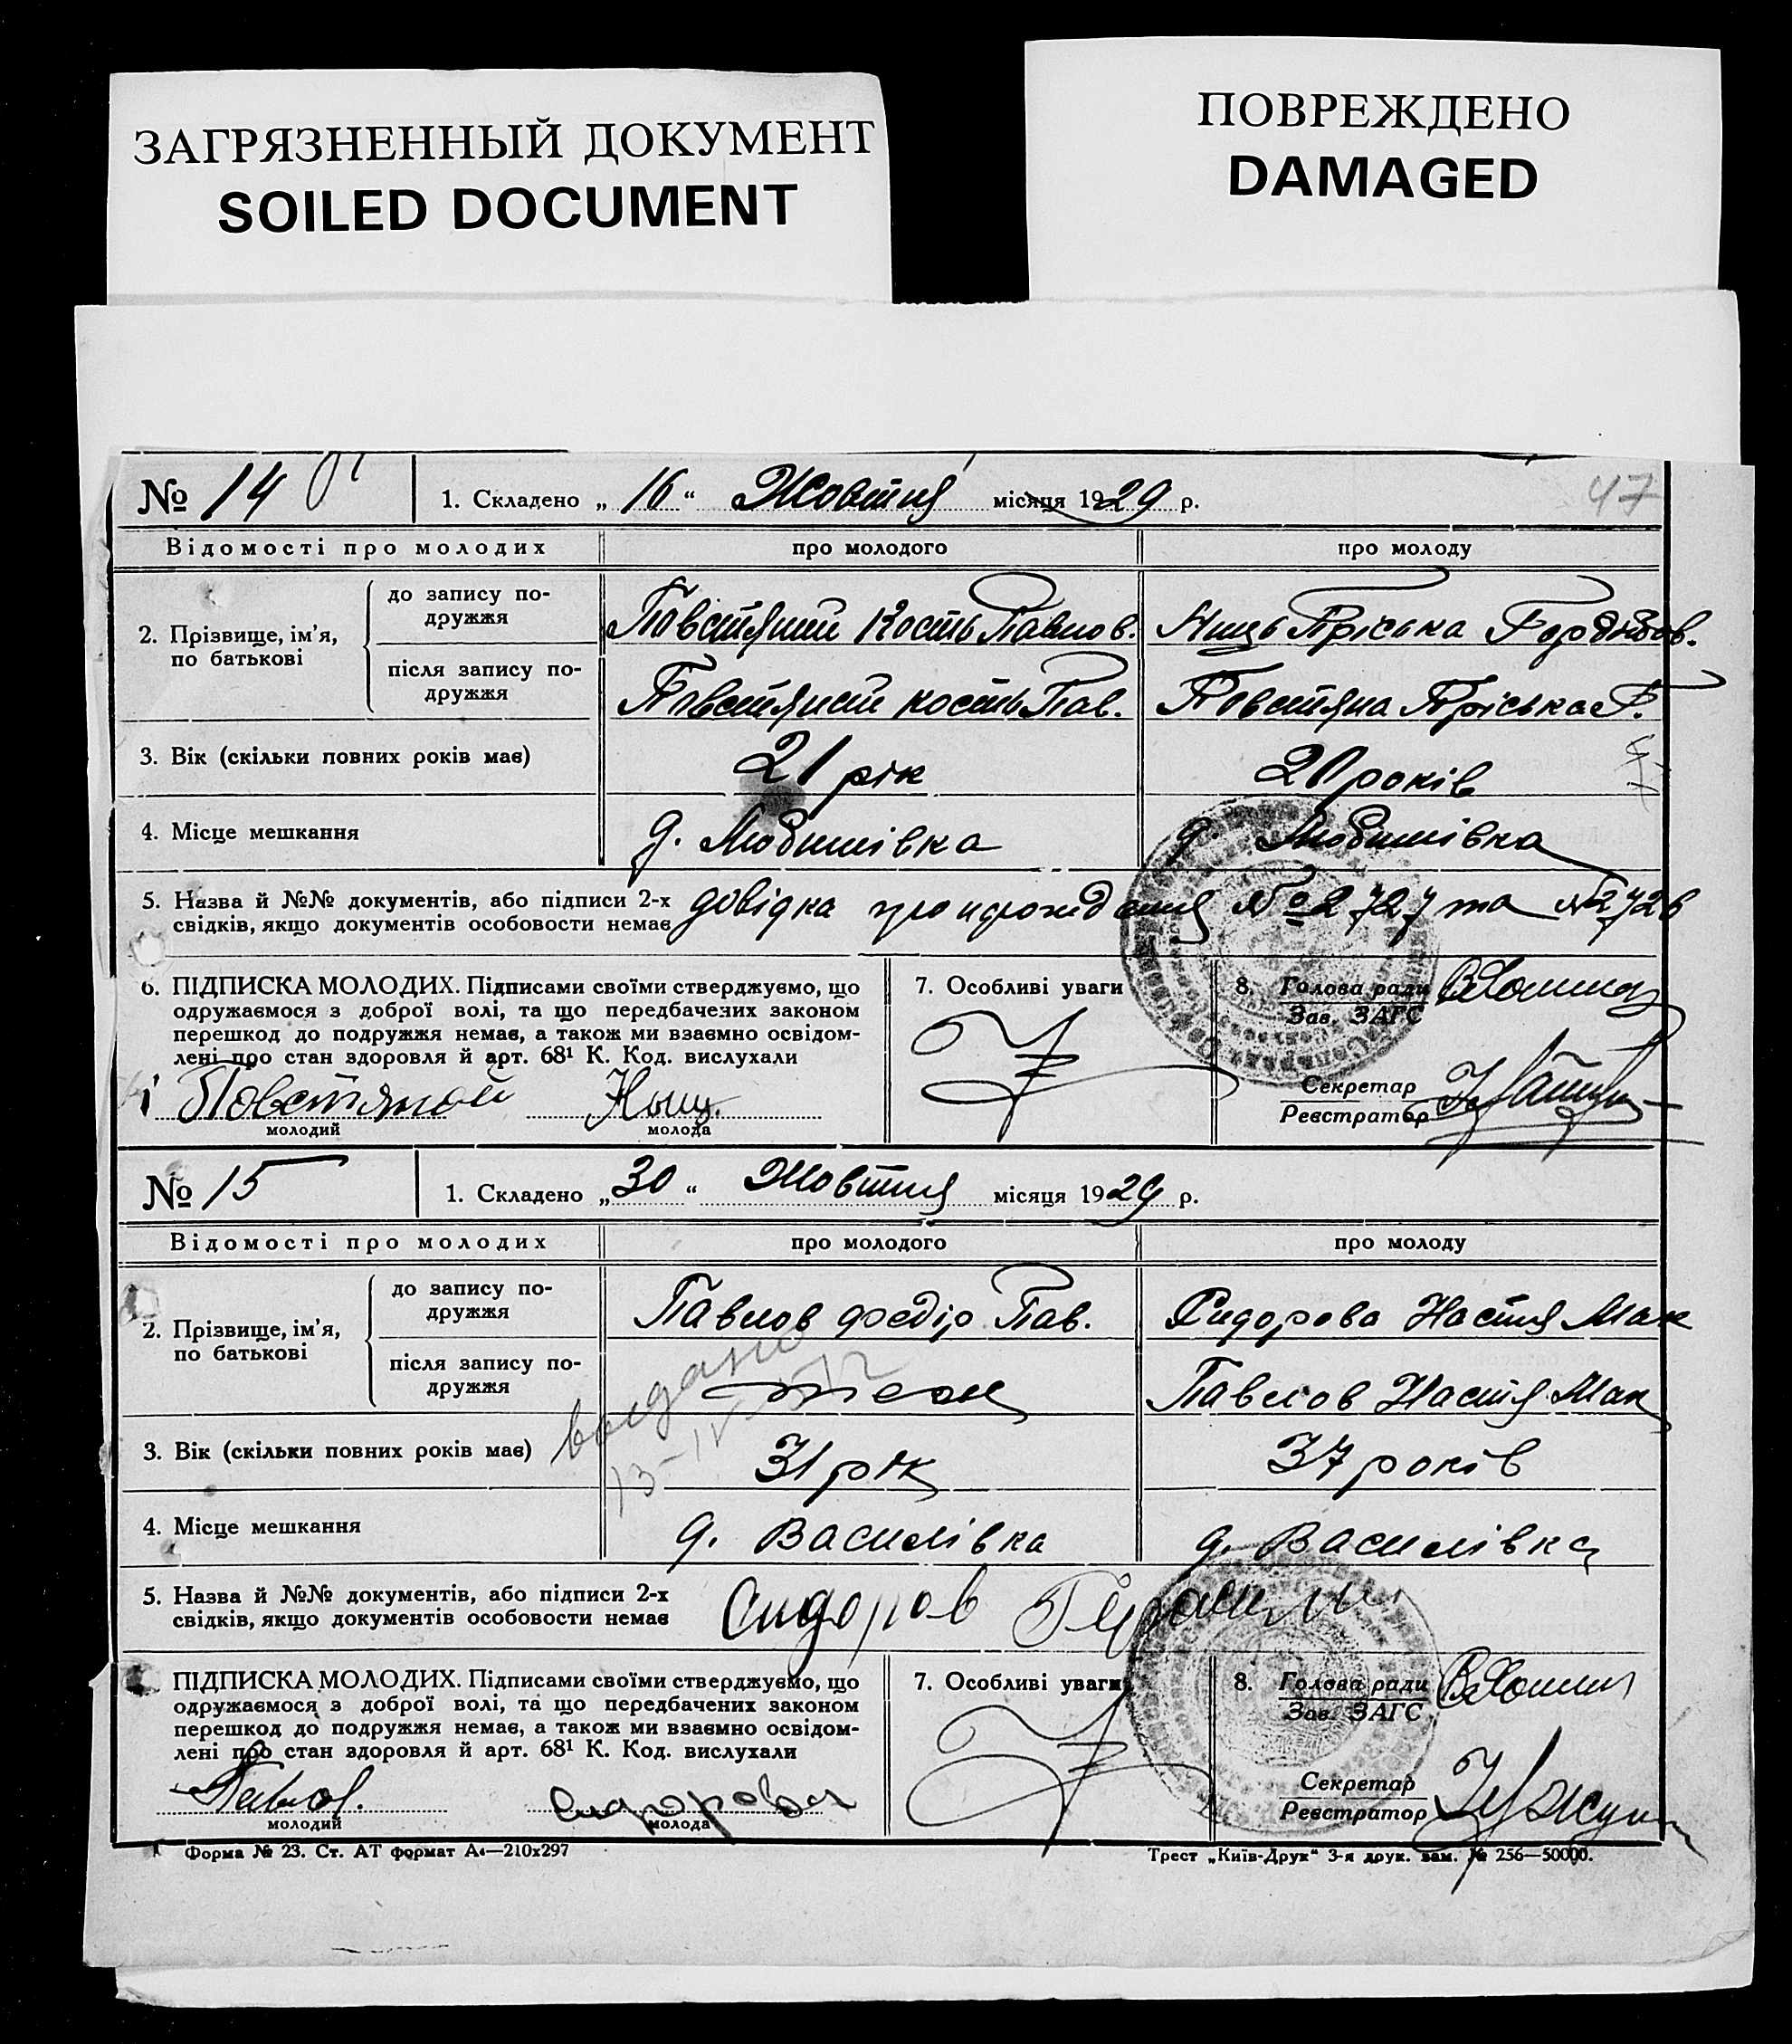 ЗАГРЯЗНЕННЫЙ ДОКУМЕНТ
SOILED DOCUMENT
ПОВРЕЖДЕНО
DAMAGED
47
№ 14
1. Складено „ 16 “ Жовтня місяця 1929 р.
Відомості про молодих
про молодого
про молоду
2. Прізвище, ім’я, по батькові
до запису по-
дружжя
Повстяний Кость Павлов.
Пріська
після запису по-
дружжя
Повстяний кость Пав.
Повстяна Пріська Г.
3. Вік (скільки повних років має)
21 рік
20 років
4. Місце мешкання
д. Любишівка
д. Любишівка
5. Назва й №№ документів, або підписи 2-х
свідків, якщо документів особовости немає
довідка про народження № 2727 та № 2726
6. ПІДПИСКА МОЛОДИХ. Підписами своїми стверджуємо, що
одружаємося з доброї волі, та що передбачених законом
перешкод до подружжя немає, а також ми взаємно освідом-
лені про стан здоровля й арт. 68¹ К. Код. вислухали
Повстяной
молодий
молода
7. Особливі уваги
8. Голова ради
Зав. ЗАГС
Секретар
Реєстратор
№ 15
1. Складено „ 30 “ Жовтня місяця 1929 р.
Відомості про молодих
про молодого
про молоду
2. Прізвище, ім’я, по батькові
до запису по-
дружжя
Павлов Федір Пав.
Сидорова Настя Мак
після запису по-
дружжя
теж
Павлов Настя Мак
видано
3. Вік (скільки повних років має)
31 рік
37 років
4. Місце мешкання
д. Василівка
д. Василівка
5. Назва й №№ документів, або підписи 2-х
свідків, якщо документів особовости немає
Сидоров Герасим
ПІДПИСКА МОЛОДИХ. Підписами своїми стверджуємо, що
одружаємося з доброї волі, та що передбачених законом
перешкод до подружжя немає, а також ми взаємно освідом-
лені про стан здоровля й арт. 68¹ К. Код. вислухали
Павлов.
молодий
Сидорова
молода
7. Особливі уваги
8. Голова ради
Зав. ЗАГС
Секретар
Реєстратор
Форма № 23. Ст. АТ формат А₄—210х297
Трест „Київ-Друк“ 3-я друк. зам. № 256—50000.